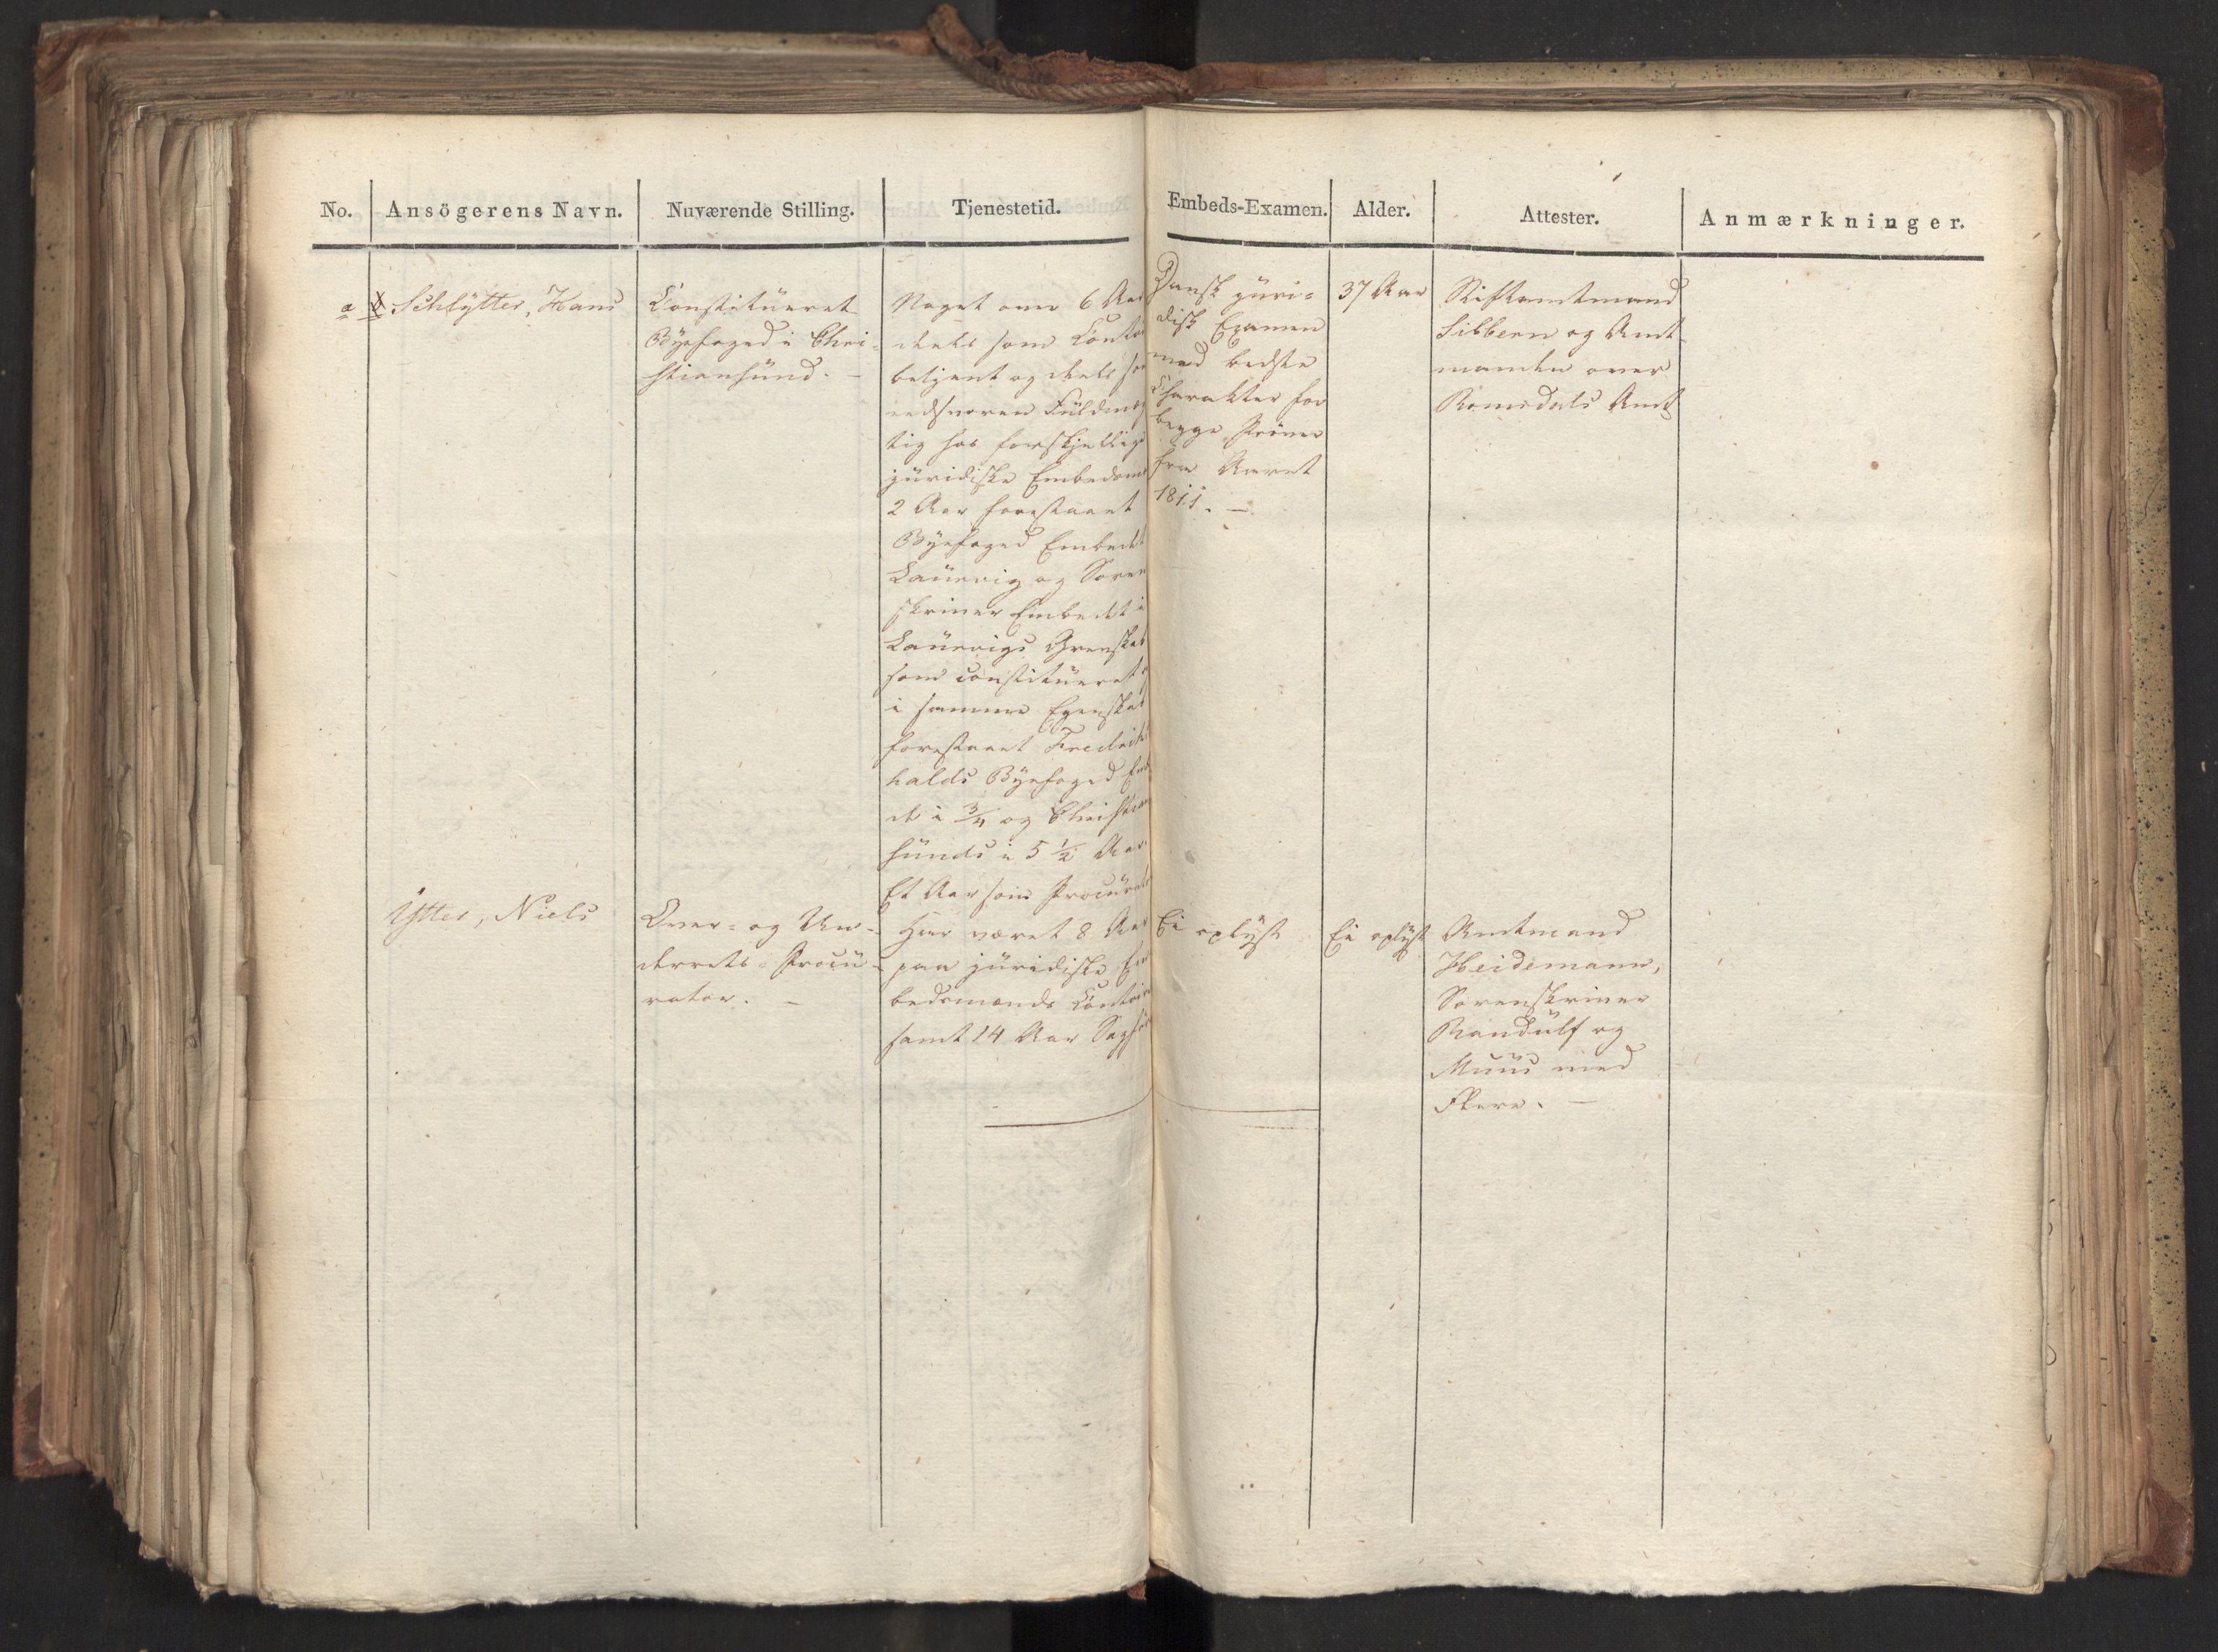 No. Ansögerens Navn. Nuværende Stilling. Tjenestetid. Embeds-Examen. Alder. Attester. Anmærkninger.
a Schlytter, Hans
Constitueret
Byefoged i Chri-
stiansund. -
Noget over 6 Aar
deels som Contoir
betjent og deels som
eedsvoren Fuldmæg
tig hos forskjellige
juridiske Embedsmæ
2 Aar forestaaet
Byefoged Embedet
Laurvig og Soren
skriver Embedet i
Laurvigs Grevskab
som constitueret
i samme Egenskab
forestaaet Fredriks
halds Byefoged Em
de i 3/4 og Christian
sunds i 5 1/2 Aar.
Et Aar som Procurat
Dansk juri-
disk Examen
med bedste
Charakter for
begge Prøver
fra Aaret
1811. -
37 Aar
Stiftamtmand
Sibbern og Amt-
manden over
Romsdals Amt
Ytter, Niels
Over- og Un-
derrets-Procu-
rator. -
Har været 8 Aar
paa juridiske Em
bedsmænds Contoir
samt 14 Aar Sagfør
Ei oplyst
Ei oplyst
Amtmand
Heidemann,
Sorenskriver
Randulf og
Muus med
Flere. -